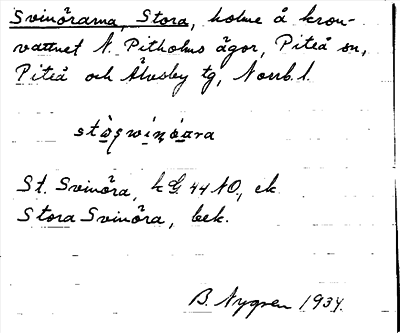 Svinörarna, Stora, holme å kron-
vattnet N. Pitholms ägor, Piteå sn,
Piteå och Älvsby tg, Norrb. l.
St. Svinöra, k G. 44 NO, ek.
Stora Svinöra, bek.
B. Nygren 1934.